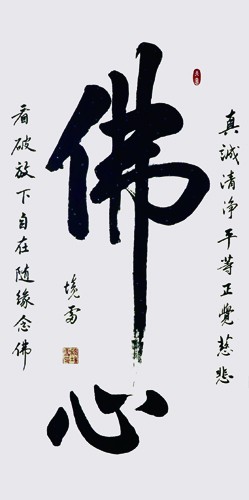 佛心
真誠清淨平等正覺慈悲
看破放下自在随缘念佛